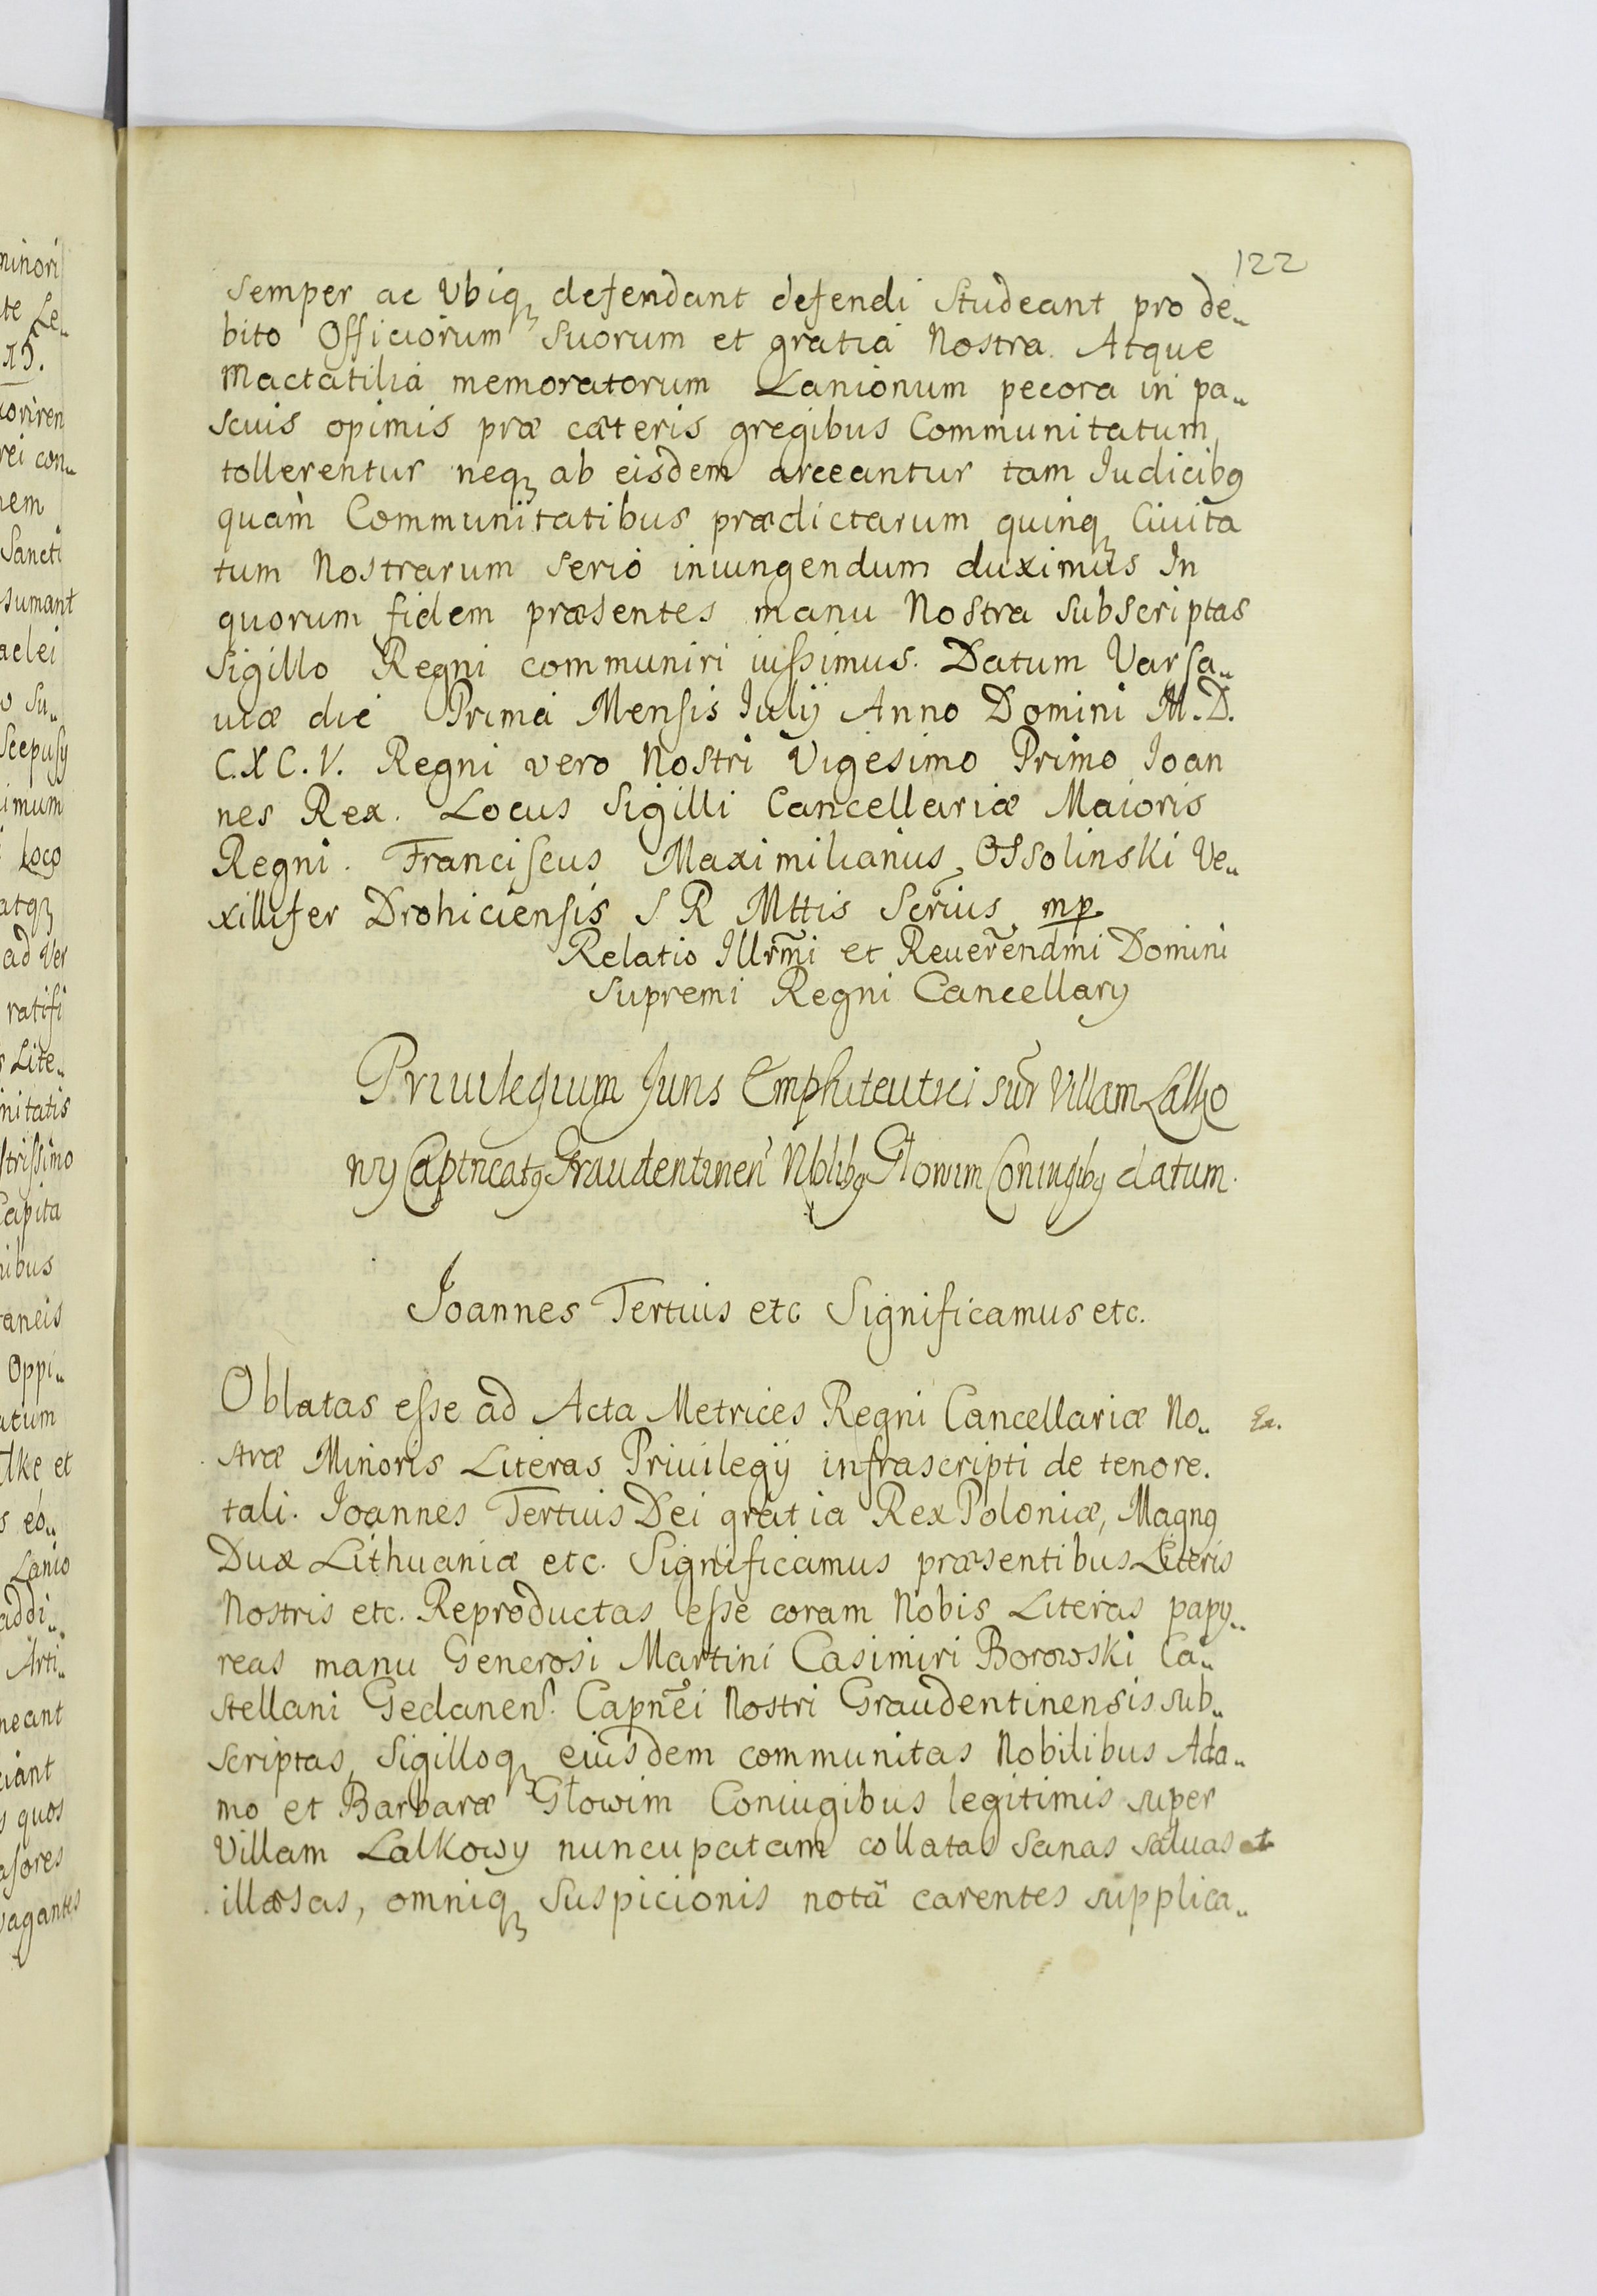 122
semper ac Ubiq₃ defendant defendi studeant pro de„
bito Officiorum suorum et gratiâ Nostra. Atque
Mactatilia memoratorum Lanionum pecora in pa„
scuis opimis præ cæteris gregibus Communitatum
tollerentur neq₃ ab eisdem arceantur tam Iudicibꝰ
quàm Communitatibus prædictarum quinq₃ Ciuita
tum Nostrarum serio iniungendum duximus In
quorum fidem præsentes manu Nostra subscriptas
Sigillo Regni communiri iussimus. Datum Varsa„
uiæ die Prima Mensis Iulij Anno Domini M.D.
C.X C.V. Regni vero Nostri Vigesimo Primo Ioan
nes Rex. Locus Sigilli Cancellariæ Maioris
Regni. Franciscus Maximilianus Ossolinski Ve„
xillifer Drohiciensis S R Mttis Scrius mp.
Relatio Illrm̃i et Reuerẽndmi Domini
Supremi Regni Cancellarÿ
Priuilegium Juris Emphiteutici sup̃r Villam Lalko
wy Captneatꝰ Graudentinen̄ Nblibꝰ Głowim Coniugibꝰ datum.
Joannes Tertius etc Significamus etc.
Oblatas esse ad Acta Metrices Regni Cancellariæ No„
stræ Minoris Literas Priuilegÿ infrascripti de tenore.
tali. Joannes Tertius Dei gratia Rex Poloniæ, Magnꝰ
Dux Lithuaniæ etc. Significamus præsentibus Literis
Nostris etc. Reproductas esse coram Nobis Literas papy„
reas manu Generosi Martini Casimiri Borowski Ca„
stellani Gedanens. Capnẽi Nostri Graudentinensis sub„
scriptas, Sigilloq₃ eiusdem communitas Nobilibus Ada„
mo et Barbaræ Głowim Coniugibus legitimis super
Villam Lalkowy nuncupatam collatas sanas saluas et
illæsas, omniq₃ Suspicionis notâ carentes supplica„